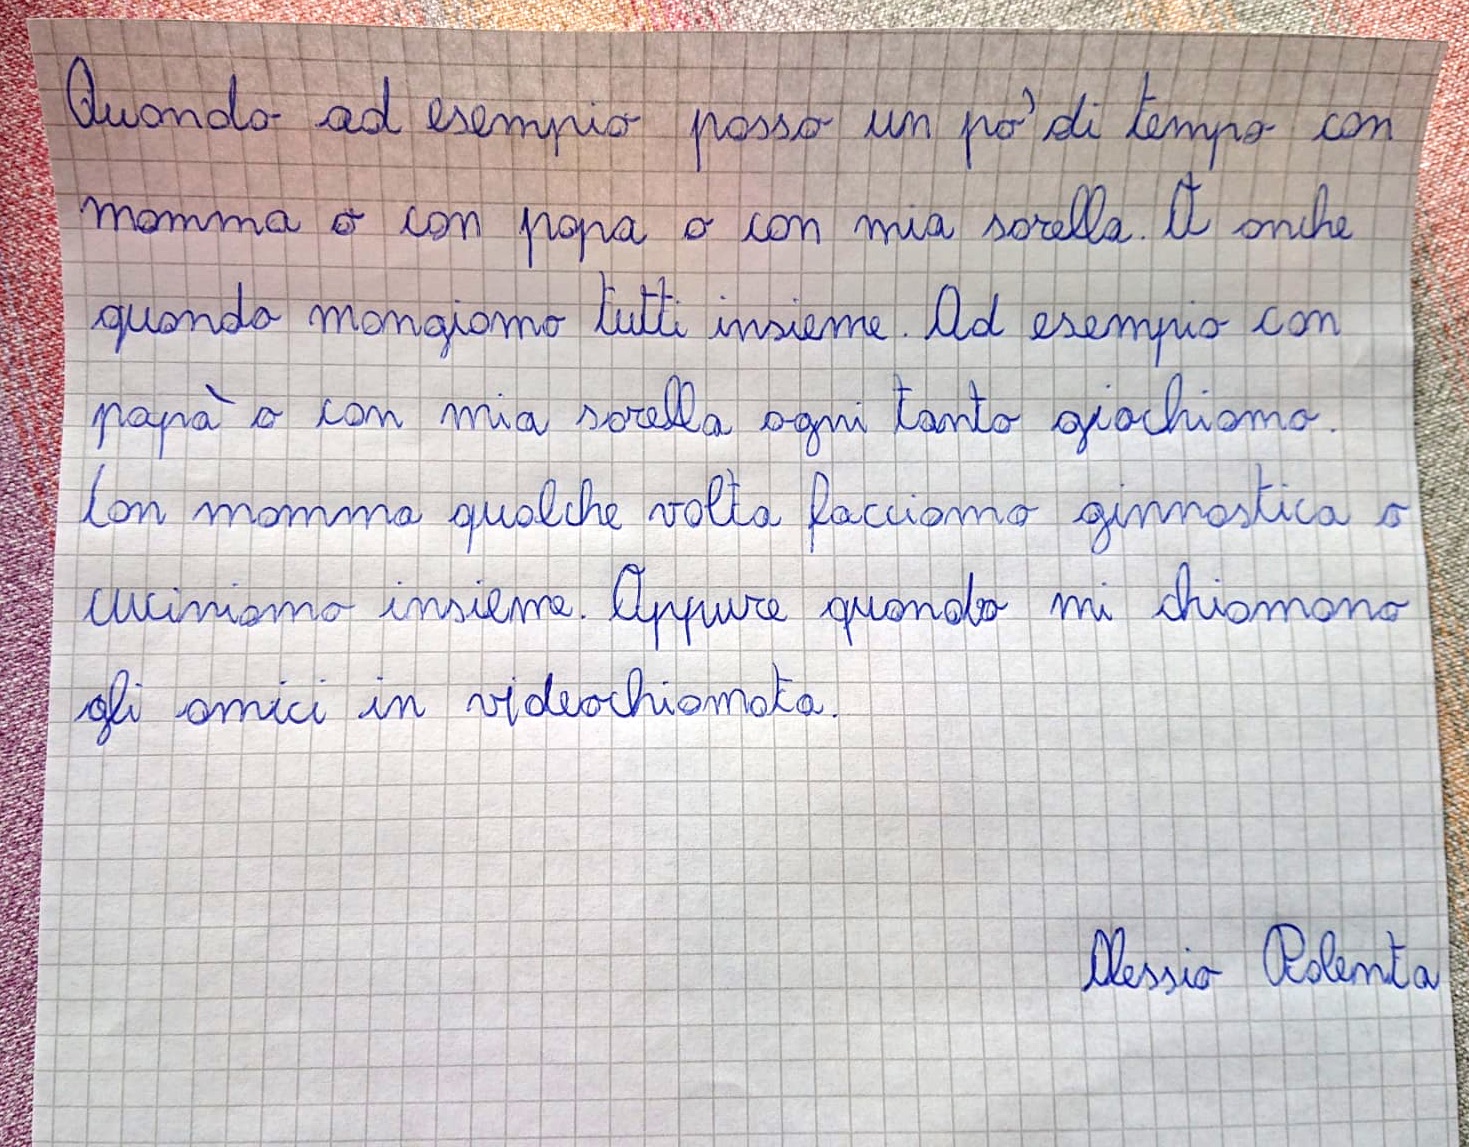 Quando ad esempio passo un pò di tempo con
mamma o con papa o con mia sorella. O anche
quando mangiamo tutti insieme. Ad esempio con
papà o con mia sorella ogni tanto giochiamo.
Con mamma qualche volta facciamo ginnastica o
cuciniamo insieme. Oppure quando mi chiamano
gli amici in videochiamata.
Alessio Polenta